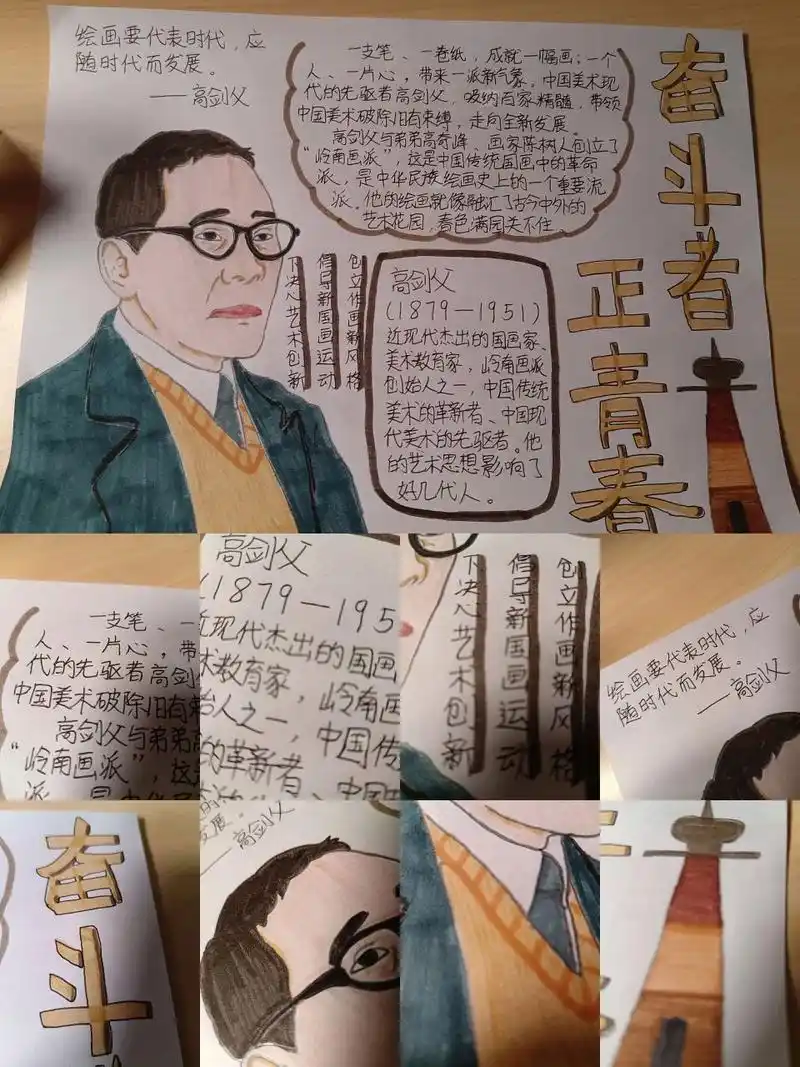 绘画要代表时代，应
随时代而发展。
——高剑父
一支笔、一卷纸，成就一幅画；一个
人、一片心，带来一派新气象，中国美术现
代的先驱者高剑父，吸纳百家精髓，带领
中国美术破除旧有束缚，走向全新发展。
高剑父与弟弟高奇峰、画家陈树人创立了
“岭南画派”，这是中国传统国画中的革命
派，是中华民族绘画史上的一个重要流
派。他的绘画就像融汇了古今中外的
艺术花园，春色满园关不住。
奋斗者
正青春
创立作画新风格
倡导新国画运动
下决心艺术创新
高剑父
(1879—1951)
近现代杰出的国画家、
美术教育家，岭南画派
创始人之一，中国传统
美术的革新者、中国现
代美术的先驱者。他
的艺术思想影响了
好几代人。
一支笔、一
人、一片心，带
代的先驱者高剑
中国美术破除旧有束
高剑父与弟弟高
“岭南画派”，这
派，是中华民
高剑父
(1879—195
近现代杰出的国画
术教育家，岭南画
始人之一，中国传
的革新者、中国
创立作画新风格
倡导新国画运动
下决心艺术创新
绘画要代表时代，应
随时代而发展。
——高剑父
奋斗
发展。
——高剑父